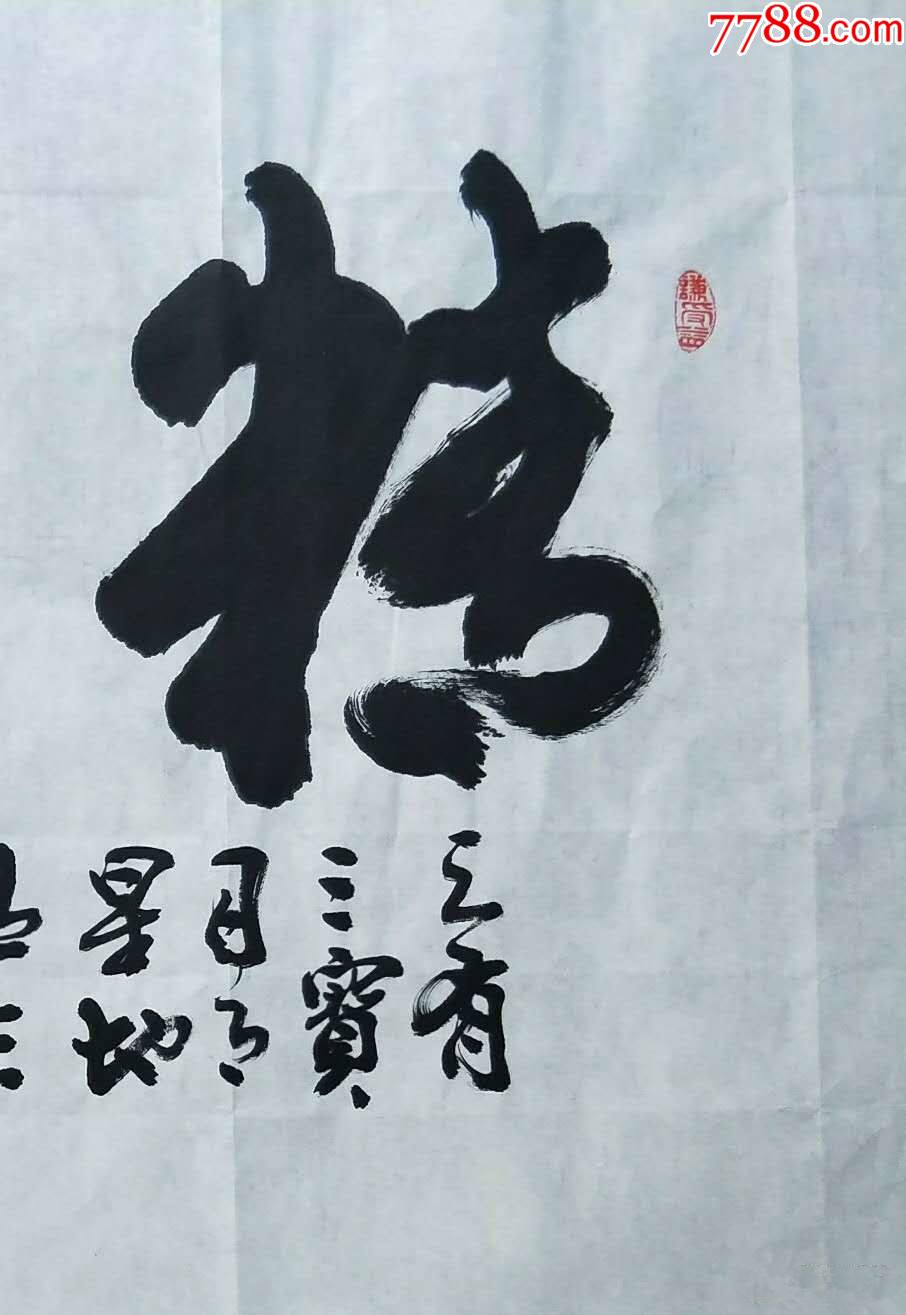 7788.com
精
謙受益
天有
三寶
日月
星地